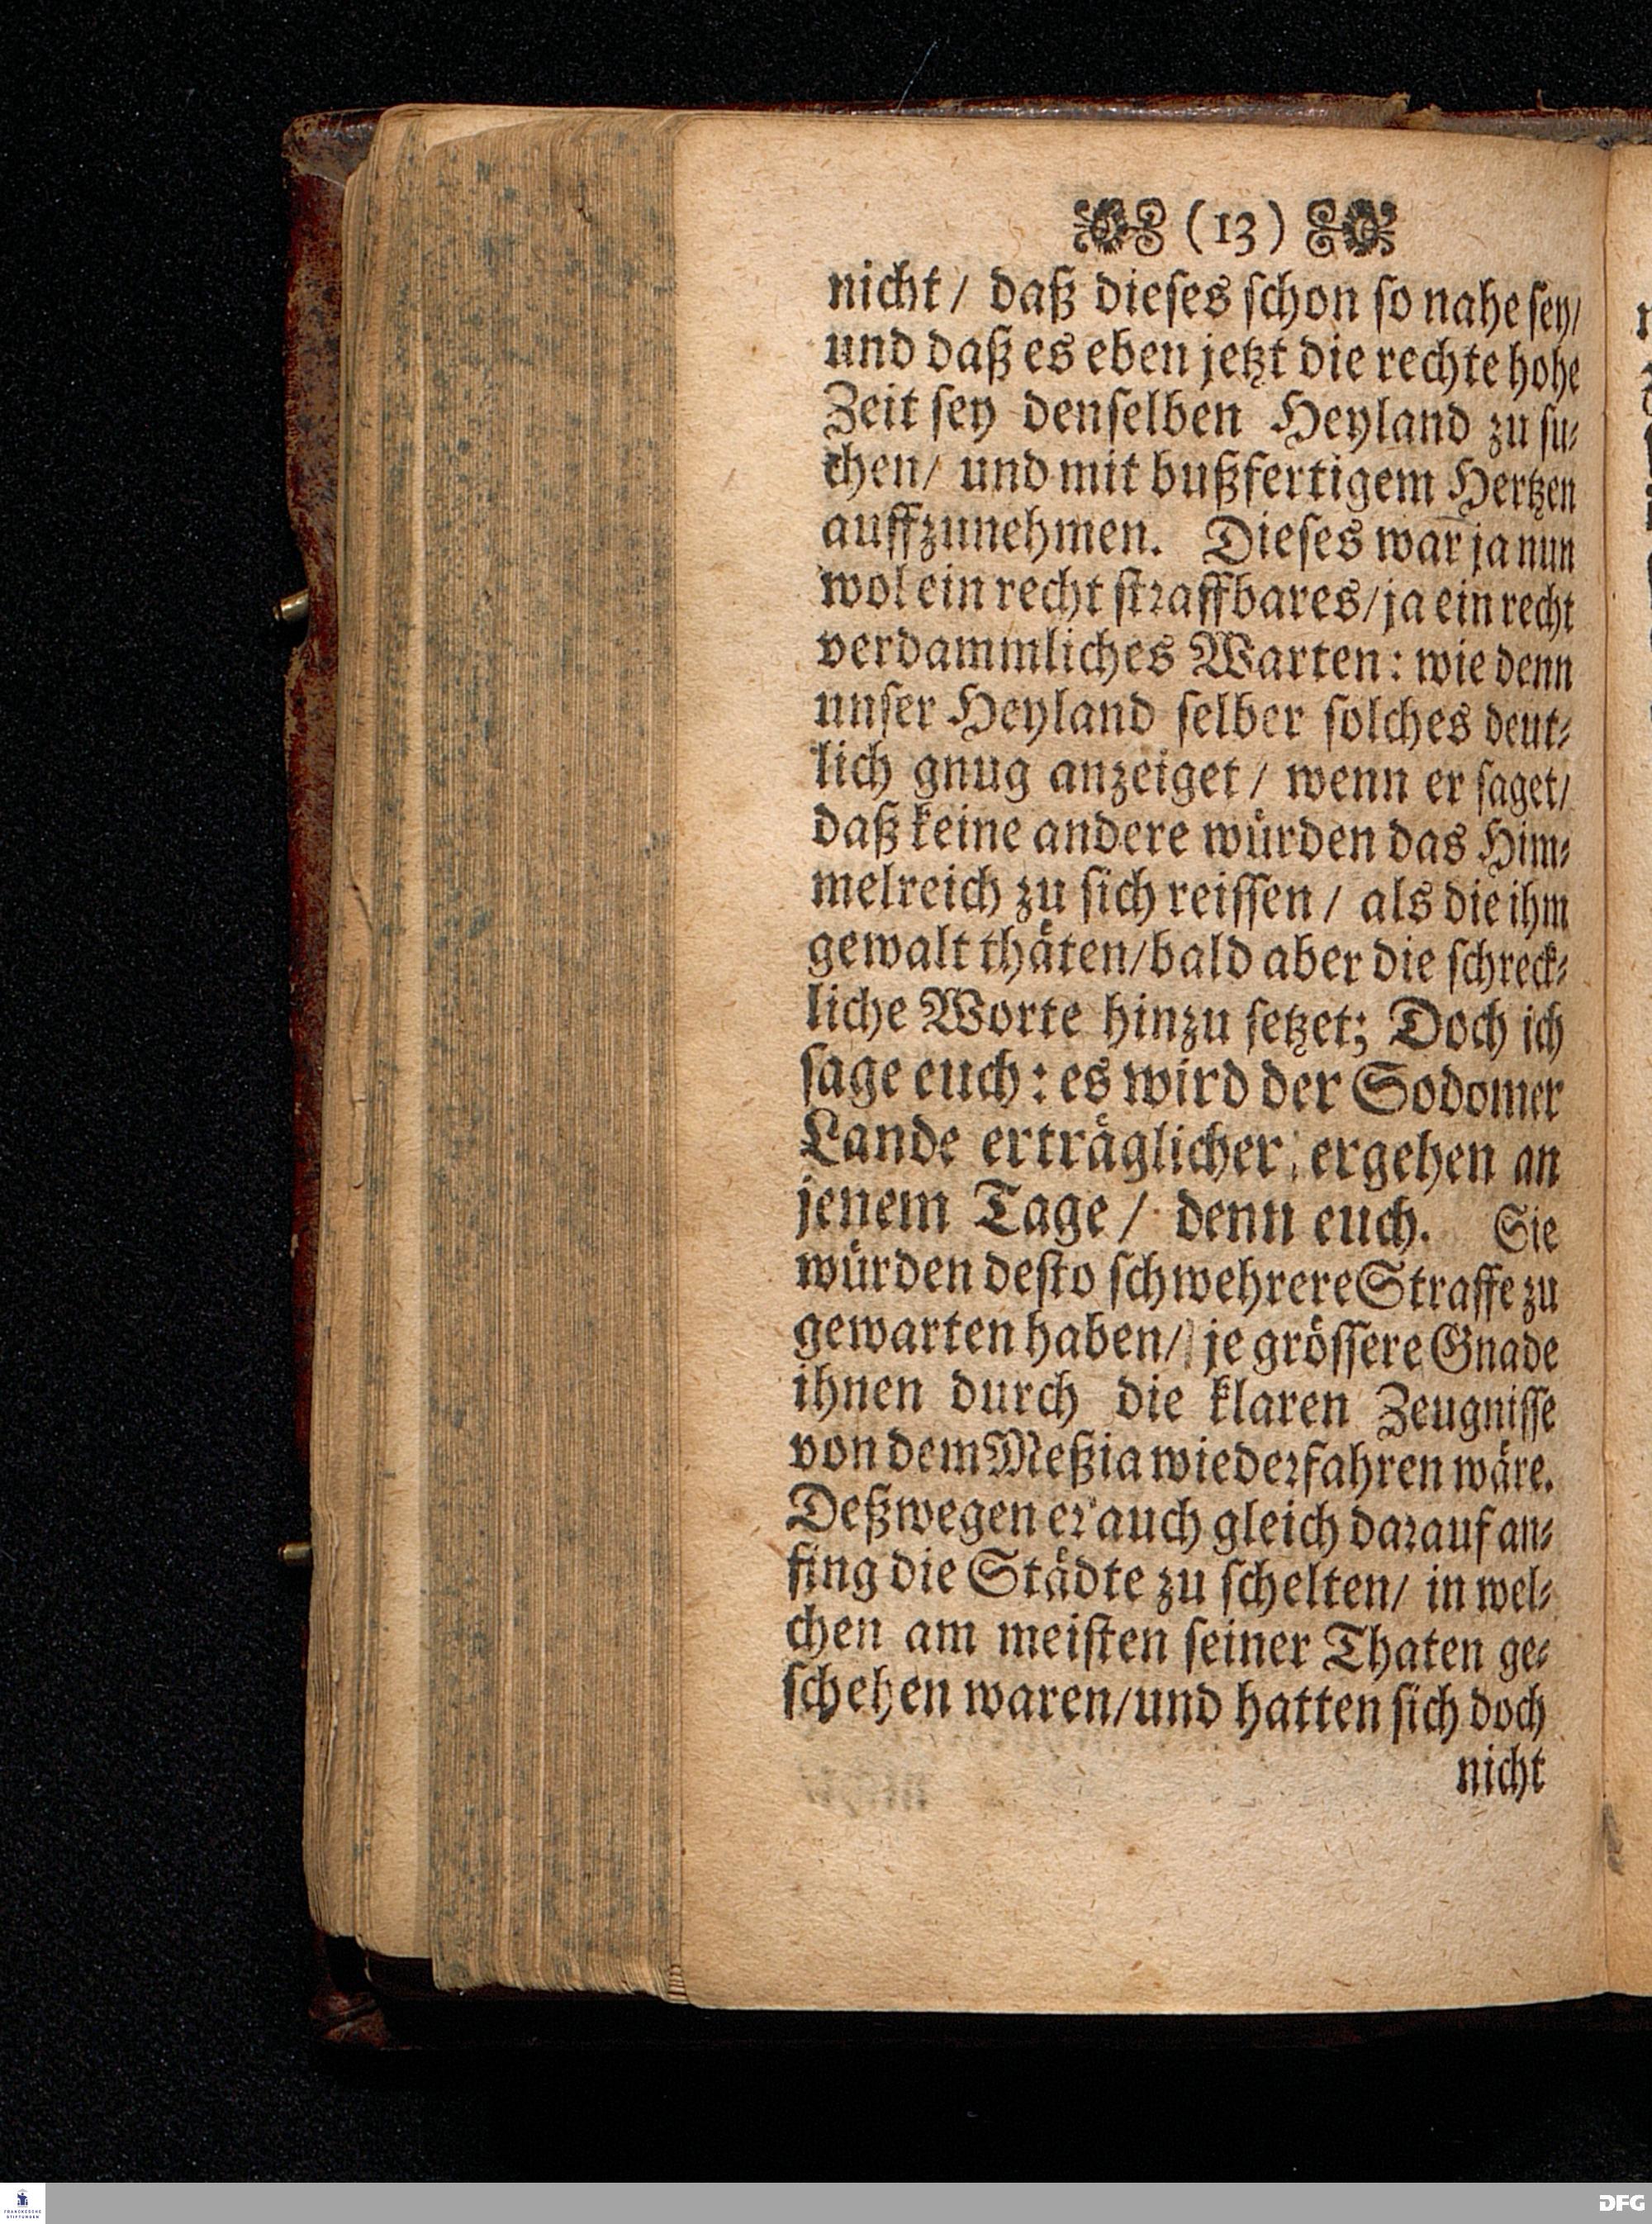 (13)
nicht / daß dieſes ſchon ſo nahe ſey/
und daß es eben jetzt die rechte hohe
Zeit ſey denſelben Heyland zu ſu⸗
chen/ und mit bußfertigem Hertzen
auffzunehmen. Dieſes war ja nun
wol ein recht ſtꝛaffbares/ja ein recht
verdammliches Warten: wie denn
unſer Heyland ſelber ſolches deut⸗
lich gnug anzeiget / wenn er ſaget/
daß keine andere wuͤrden das Him⸗
melreich zu ſich reiſſen / als die ihm
gewalt thaͤten/bald aber die ſchreck⸗
liche Worte hinzu ſetzet; Doch ich
ſage euch: es wird der Sodomer
Lande ertraͤglicher ergehen an
jenem Tage / denn euch. Sie
wuͤrden deſto ſchwehrere Straffe zu
gewarten haben/ je groͤſſere Gnade
ihnen durch die klaren Zeugniſſe
von dem Meßia wiedeꝛfahren waͤre.
Deßwegen eꝛ auch gleich daꝛauf an⸗
fing die Staͤdte zu ſchelten/ in wel⸗
chen am meiſten ſeiner Thaten ge⸗
ſchehen waren/und hatten ſich doch
nicht
FRANCKESCHE
STIFTUNGEN
DFG